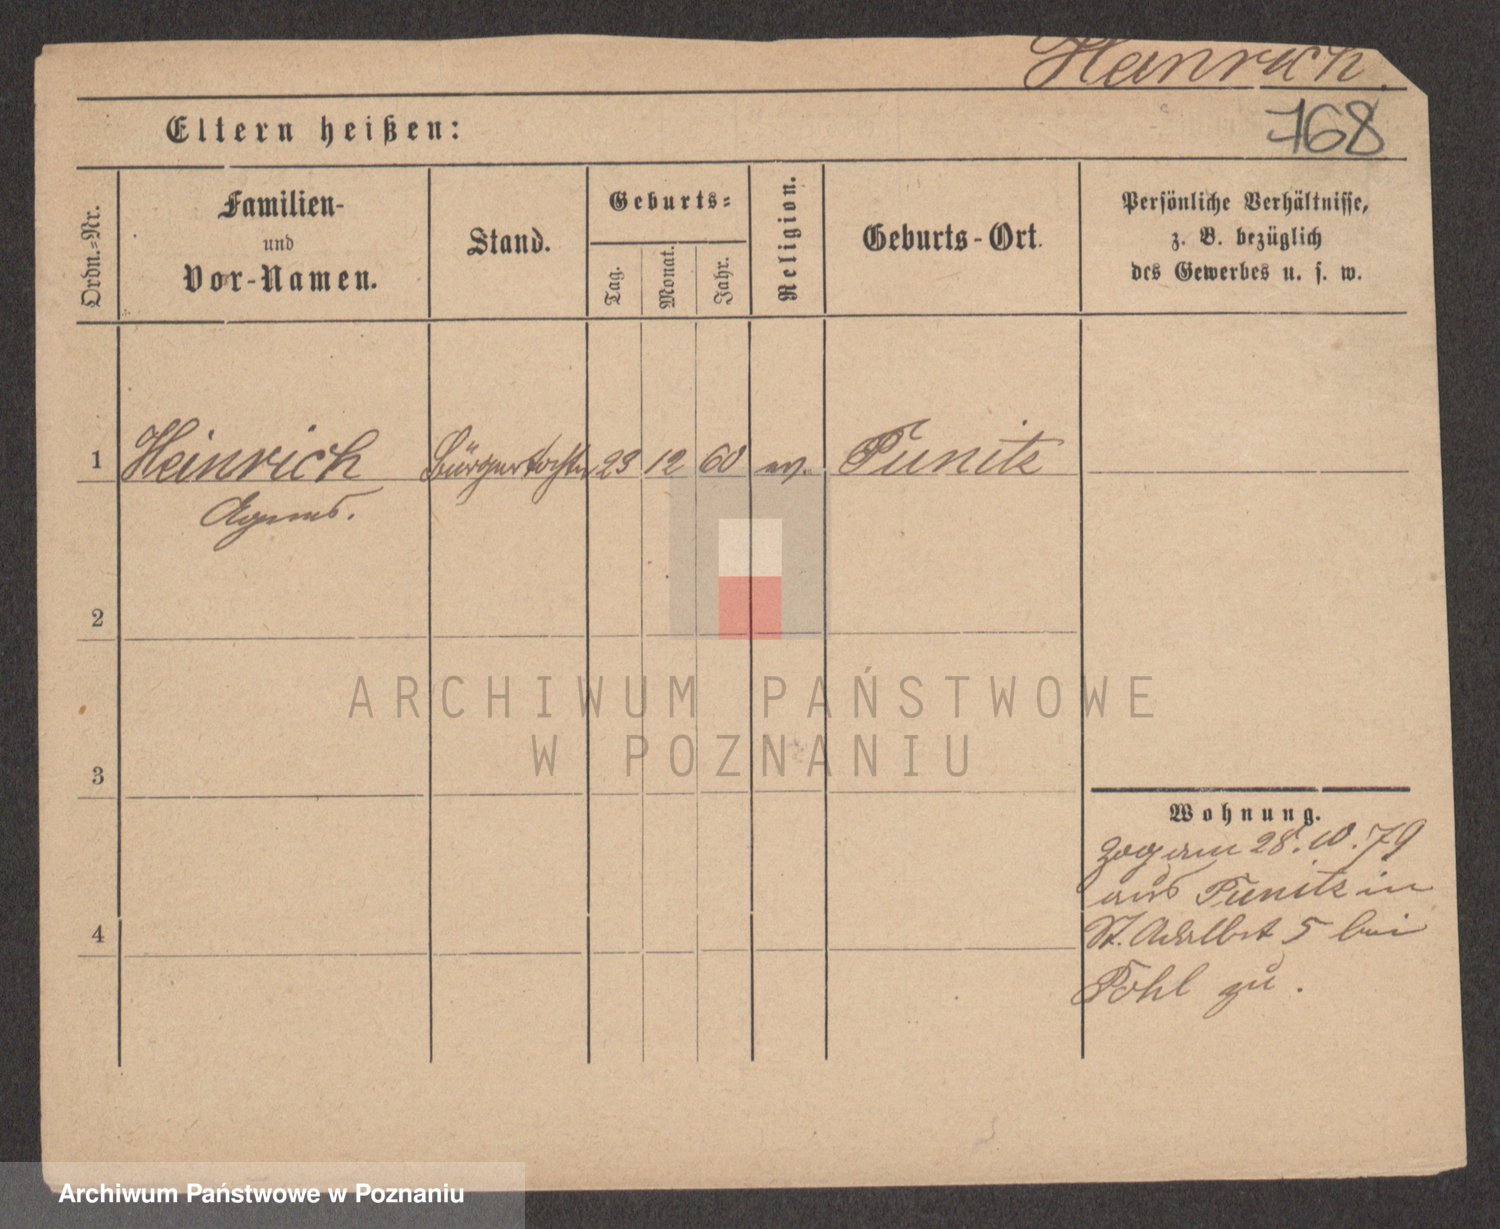 Heinrich.
768
Eltern heißen:
Ordn.=Nr.
Familien-
und
Vor-Namen.
Stand.
Geburts=
Tag.
Monat.
Jahr.
Religion.
Geburts-Ort.
Persönliche Verhältnisse,
z. B. bezüglich
des Gewerbes u. s. w.
1 Heinrich Bürgertochter 23 12 60 ev. Punitz
Agnes.
2
3
4
Wohnung.
zog am 28.10.79
aus Punitz in
St. Adalbert 5 bei
Pohl zu.
ARCHIWUM PAŃSTWOWE
W POZNANIU
Archiwum Państwowe w Poznaniu